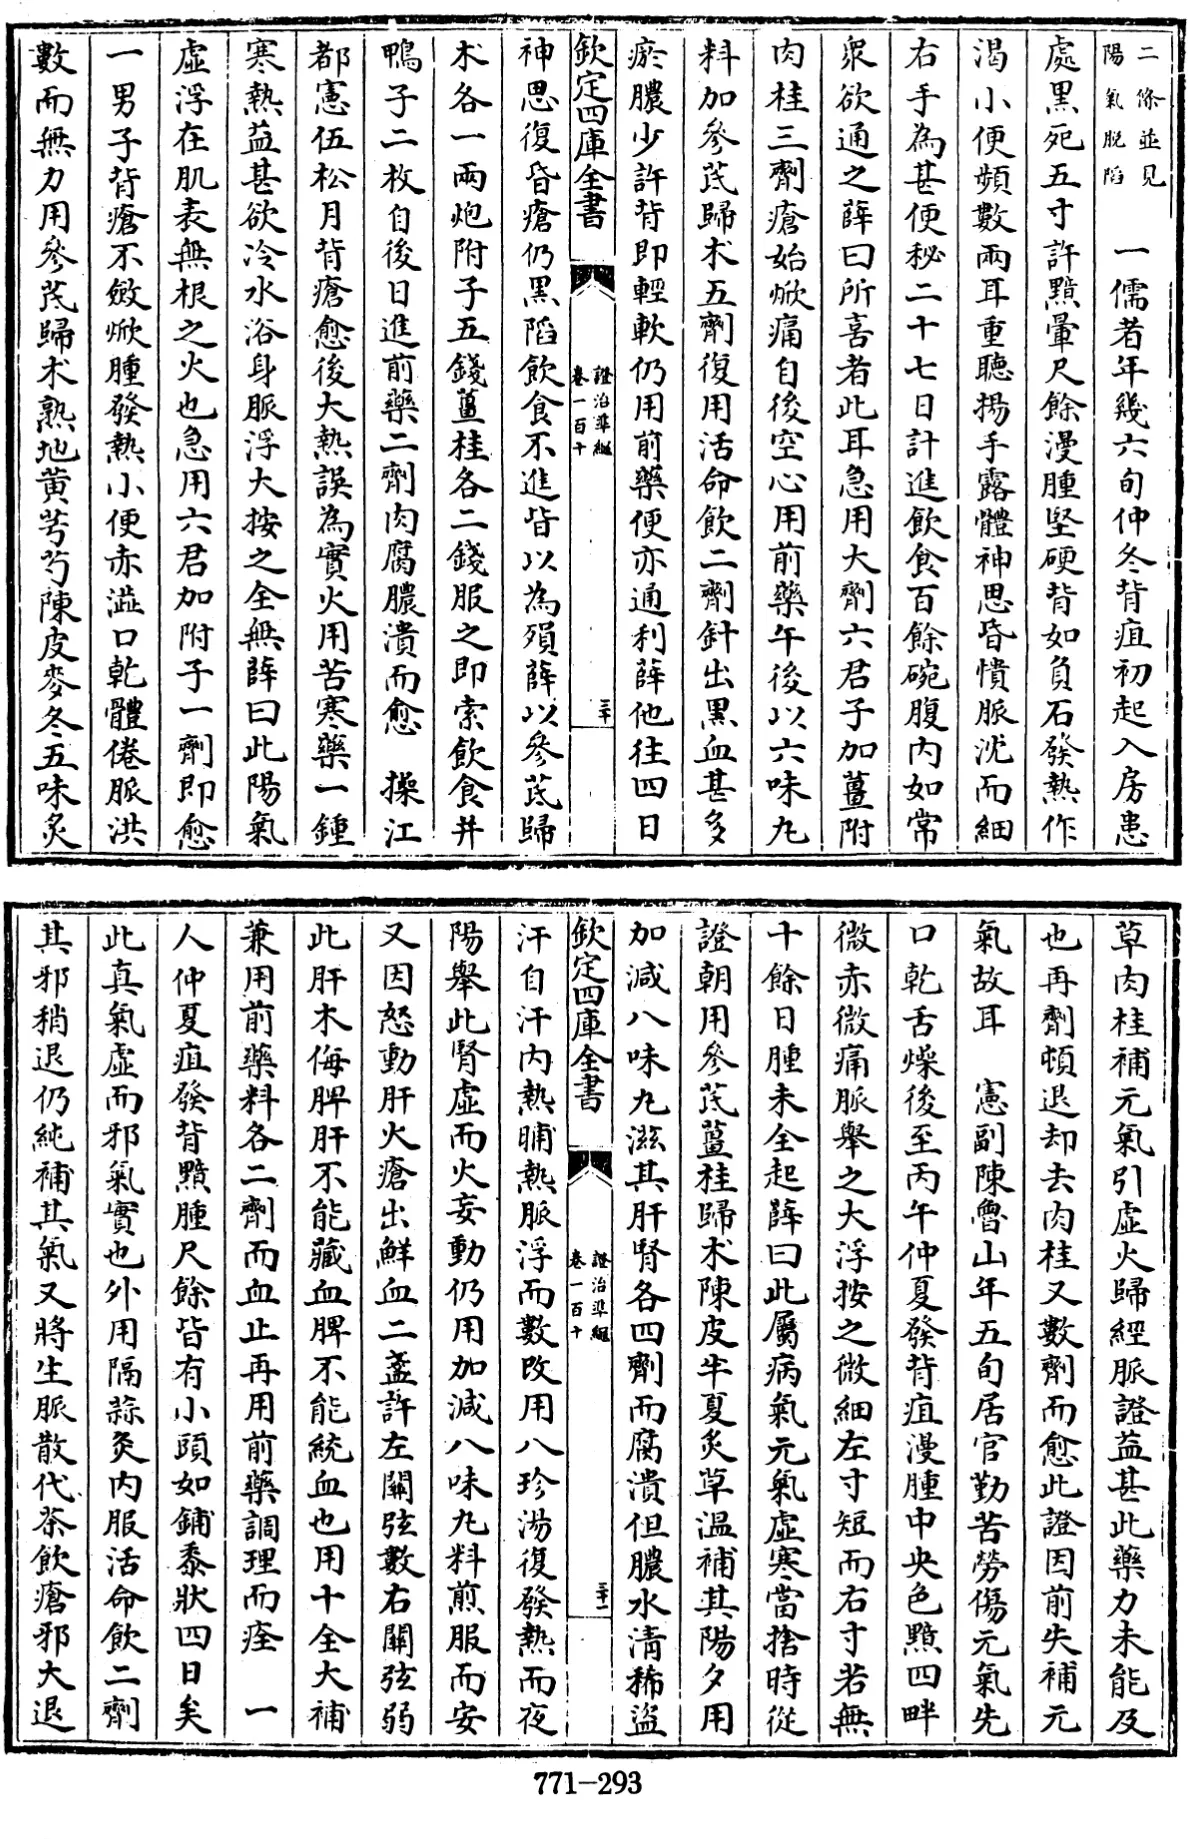 二條並見
陽氣脫陷
一儒者年幾六旬仲冬背疽初起入房患
處黑死五寸許黯暈尺餘漫腫堅硬背如負石發熱作
渴小便頻數兩耳重聽揚手露體神思昏憒脈沈而細
右手為甚便秘二十七日計進飲食百餘碗腹內如常
衆欲通之薛曰所喜者此耳急用大劑六君子加薑附
肉桂三劑瘡始焮痛自後空心用前藥午後以六味丸
料加參茋歸术五劑復用活命飲二劑針出黑血甚多
瘀膿少許背即輕軟仍用前藥便亦通利薛他往四日
欽定四庫全書
證治準繩
卷一百十
三十
神思復昏瘡仍黑陷飲食不進皆以為殞薛以參茋歸
术各一兩炮附子五錢薑桂各二錢服之即索飲食并
鴨子二枚自後日進前藥二劑肉腐膿潰而愈　操江
都憲伍松月背瘡愈後大熱誤為實火用苦寒藥一鍾
寒熱益甚欲冷水浴身脈浮大按之全無薛曰此陽氣
虛浮在肌表無根之火也急用六君加附子一劑即愈
一男子背瘡不斂焮腫發熱小便赤澁口乾體倦脈洪
數而無力用參茋歸术熟地黄芎芍陳皮麥冬五味炙
草肉桂補元氣引虛火歸經脈證益甚此藥力未能及
也再劑頓退却去肉桂又數劑而愈此證因前失補元
氣故耳　憲副陳魯山年五旬居官勤苦勞傷元氣先
口乾舌燥後至丙午仲夏發背疽漫腫中央色黯四畔
微赤微痛脈舉之大浮按之微細左寸短而右寸若無
十餘日腫未全起薛曰此屬病氣元氣虛寒當捨時從
證朝用參茋薑桂歸术陳皮半夏炙草溫補其陽夕用
加減八味丸滋其肝腎各四劑而腐潰但膿水清稀盜
欽定四庫全書
證治準繩
卷一百十
三十一
汗自汗内熱晡熱脈浮而數改用八珍湯復發熱而夜
陽舉此腎虛而火妄動仍用加減八味丸料煎服而安
又因怒動肝火瘡出鮮血二盞許左關弦數右關弦弱
此肝木侮脾肝不能藏血脾不能統血也用十全大補
兼用前藥料各二劑而血止再用前藥調理而痊　一
人仲夏疽發背黯腫尺餘皆有小頭如鋪黍狀四日矣
此真氣虛而邪氣實也外用隔蒜灸内服活命飲二劑
其邪稍退仍純補其氣又將生脈散代茶飲瘡邪大退
771—293